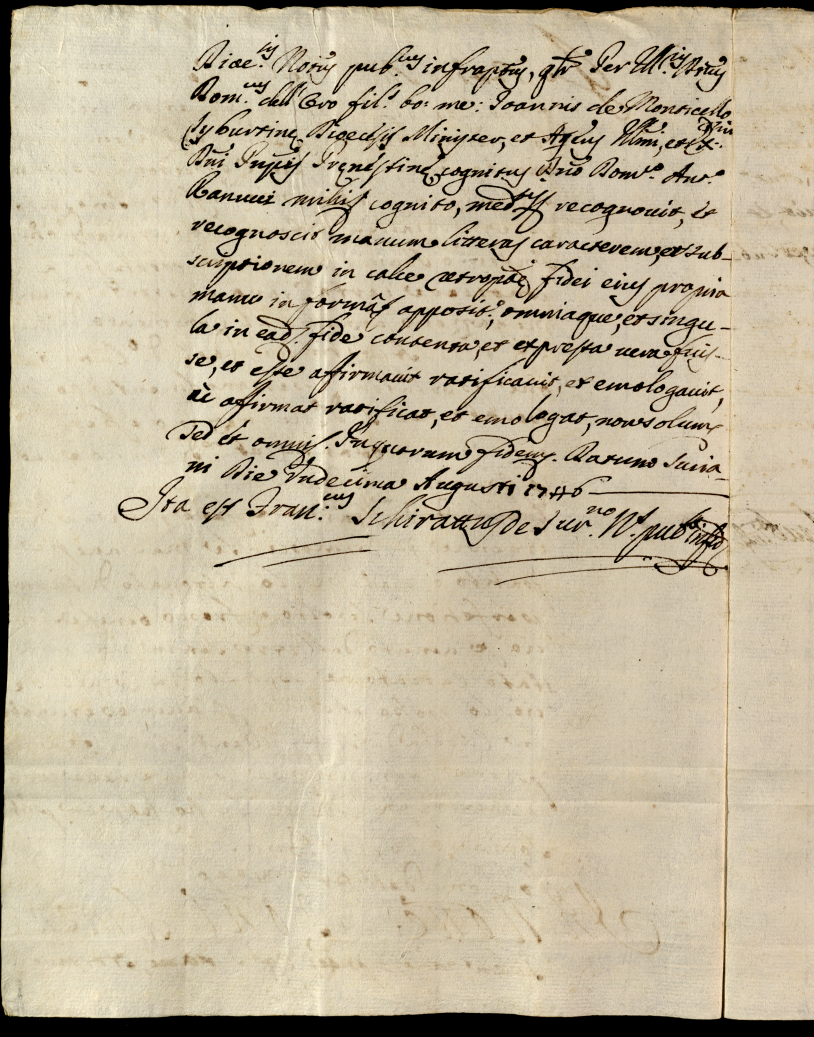 Dioe.is Notus pub.cus infraptus, qtr Per Ill.is Dnus
Dom.cus dell'Oro fil. bo: me: Joannis de Monticello
Tyburtine Dioecesis Minister, et Agens Illmi, et
Dni Prenestine cognitus Dno Dom.co Ant.o
Ranucci mihi cognito, med. recognouit, et
recognoscit manum litteras caracterem, et sub-
scriptionem in calce retropte fidei eius propria
manu in formas apposit., omniaque, et singu-
la in ead. fide contenta, et expressa uera fuis-
se, et esse affirmauit ratificauit, et emologauit,
ac affirmat ratificat, et emologat, non solum
sed et omni. In quorum fidem. Datum Suria-
ni Die Undecima Augusti 1746
Ita est Fran.cus Schirattus de Sur.no N.s pub.s infus